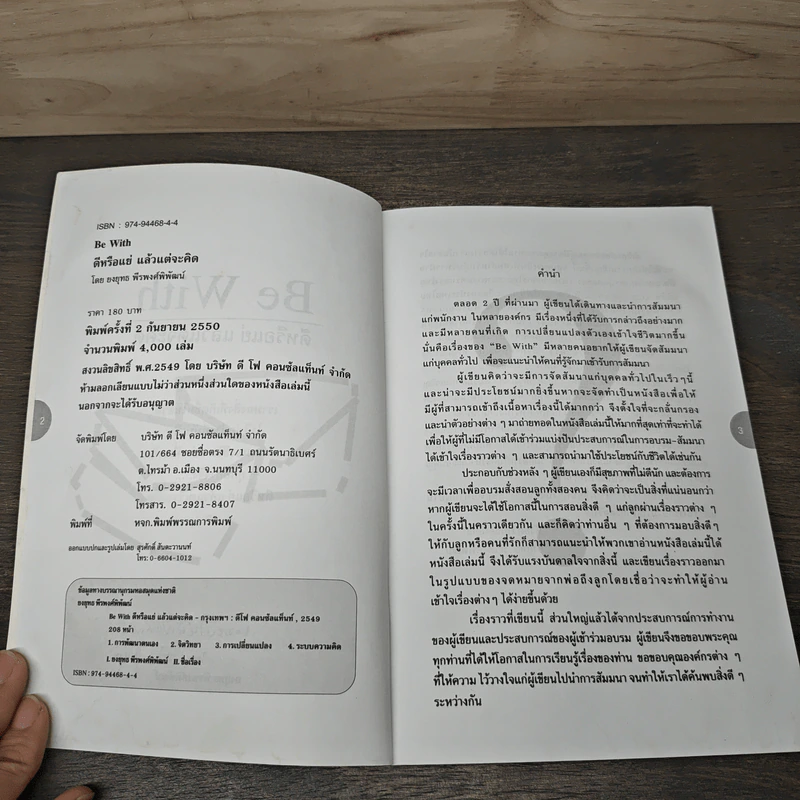 ISBN : 974-94468-4-4
Be With
ดีหรือแย่ แล้วแต่จะคิด
โดย ยงยุทธ พีรพงศ์พิพัฒน์
ราคา 180 บาท
พิมพ์ครั้งที่ 2 กันยายน 2550
จำนวนพิมพ์ 4,000 เล่ม
สงวนลิขสิทธิ์ พ.ศ.2549 โดย บริษัท ดี โฟ คอนซัลแท็นท์ จำกัด
ห้ามลอกเลียนแบบไม่ว่าส่วนหนึ่งส่วนใดของหนังสือเล่มนี้
นอกจากจะได้รับอนุญาต
2
จัดพิมพ์โดย บริษัท ดี โฟ คอนซัลแท็นท์ จำกัด
101/664 ซอยชื่อตรง 7/1 ถนนรัตนาธิเบศร์
ต.ไทรม้า อ.เมือง จ.นนทบุรี 11000
โทร. 0-2921-8806
โทรสาร. 0-2921-8407
พิมพ์ที่ หจก.พิมพ์พรรณการพิมพ์
ออกแบบปกและรูปเล่มโดย สุรศักดิ์ สันตะวานนท์
โทร: 0-6604-1012
ข้อมูลทางบรรณานุกรมหอสมุดแห่งชาติ
ยงยุทธ พีรพงศ์พิพัฒน์
Be With ดีหรือแย่ แล้วแต่จะคิด - กรุงเทพฯ : ดีโฟ คอนซัลแท็นท์ , 2549
208 หน้า
1. การพัฒนาตนเอง 2. จิตวิทยา 3. การเปลี่ยนแปลง 4. ระบบความคิด
I. ยงยุทธ พีรพงศ์พิพัฒน์ II. ชื่อเรื่อง
ISBN : 974-94468-4-4
คำนำ
ตลอด 2 ปี ที่ผ่านมา ผู้เขียนได้เดินทางและนำการสัมมนา
แก่พนักงาน ในหลายองค์กร มีเรื่องหนึ่งที่ได้รับการกล่าวถึงอย่างมาก
และมีหลายคนที่เกิด การเปลี่ยนแปลงตัวเองเข้าใจชีวิตมากขึ้น
นั่นคือเรื่องของ "Be With" มีหลายคนอยากให้ผู้เขียนจัดสัมมนา
แก่บุคคลทั่วไป เพื่อจะแนะนำให้คนที่รู้จักมาเข้ารับการสัมมนา
ผู้เขียนคิดว่าจะมีการจัดสัมมนาแก่บุคคลทั่วไปในเร็วๆนี้
และน่าจะมีประโยชน์มากยิ่งขึ้นหากจะจัดทำเป็นหนังสือเพื่อให้
มีผู้ที่สามารถเข้าถึงเนื้อหาเรื่องนี้ได้มากกว่า จึงตั้งใจที่จะกลั่นกรอง
และนำตัวอย่างต่าง ๆ มาถ่ายทอดในหนังสือเล่มนี้ให้มากที่สุดเท่าที่จะทำได้
เพื่อให้ผู้ที่ไม่มีโอกาสได้เข้าร่วมแบ่งปันประสบการณ์ในการอบรม-สัมมนา
ได้เข้าใจเรื่องราวต่าง ๆ และสามารถนำมาใช้ประโยชน์กับชีวิตได้เช่นกัน
3
ประกอบกับช่วงหลัง ๆ ผู้เขียนเองก็มีสุขภาพที่ไม่ดีนัก และต้องการ
จะมีเวลาเพื่ออบรมสั่งสอนลูกทั้งสองคน จึงคิดว่าจะเป็นสิ่งที่แน่นอนกว่า
หากผู้เขียนจะได้ใช้โอกาสนี้ในการสอนสิ่งดี ๆ แก่ลูกผ่านเรื่องราวต่าง ๆ
ในครั้งนี้ในคราวเดียวกัน และก็คิดว่าท่านอื่น ๆ ที่ต้องการมอบสิ่งดีๆ
ให้กับลูกหรือคนที่รักก็สามารถแนะนำให้พวกเขาอ่านหนังสือเล่มนี้ได้
หนังสือเล่มนี้ จึงได้รับแรงบันดาลใจจากสิ่งนี้ และเขียนเรื่องราวออกมา
ในรูปแบบของจดหมายจากพ่อถึงลูกโดยเชื่อว่าจะทำให้ผู้อ่าน
เข้าใจเรื่องต่างๆ ได้ง่ายขึ้นด้วย
เรื่องราวที่เขียนนี้ ส่วนใหญ่แล้วได้จากประสบการณ์การทำงาน
ของผู้เขียนและประสบการณ์ของผู้เข้าร่วมอบรม ผู้เขียนจึงขอขอบพระคุณ
ทุกท่านที่ได้ให้โอกาสในการเรียนรู้เรื่องของท่าน ขอขอบคุณองค์กรต่าง ๆ
ที่ให้ความ ไว้วางใจแก่ผู้เขียนไปนำการสัมมนา จนทำให้เราได้ค้นพบสิ่งดี ๆ
ระหว่างกัน